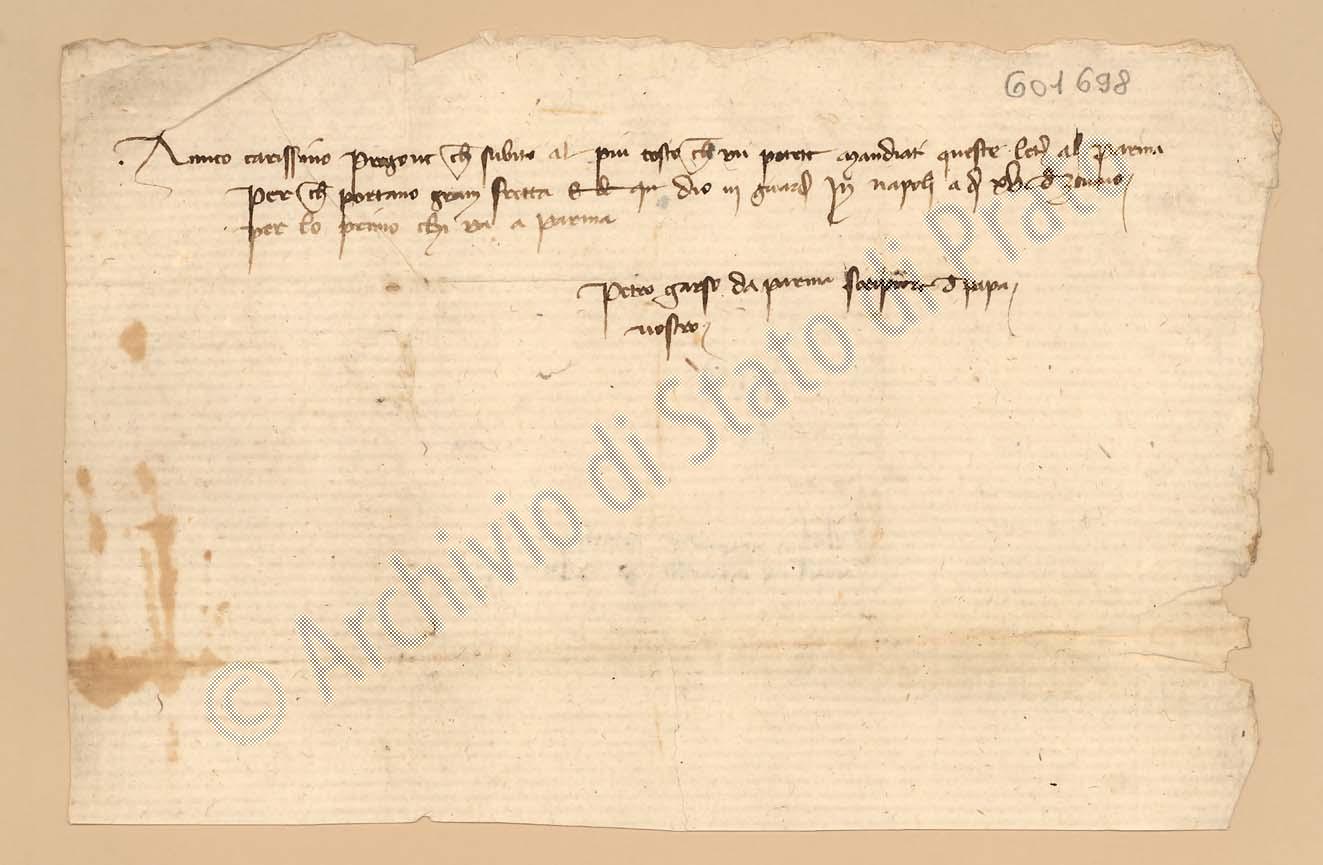 601698
Amico carissimo Pregovi ch subito al piu tosto ch vii potete mandiati queste letr al parma
Per ch portano gram fretta qui dio vi guard In napoli a d xvi d zenaro
per lo primo chi va a parma
Petro garso da parma scriptore d papa
nostro
© Archivio di Stato di Prato